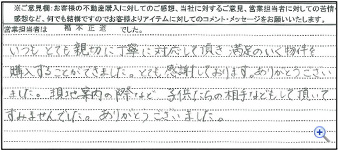 ※ご意見欄:お客様の不動産購入に対してのご感想、当社に対するご意見、営業担当者に対しての苦情・
感想など、何でも結構ですのでお客様よりアイテムに対してのコメント・メッセージをお願いいたします。
営業担当者は 橋本正道 でした。
いつも とても 親切に丁寧に対応して頂き 満足のいく物件を
購入することができました。とても感謝しております。ありがとうござい
ました。現地案内の際など 子供たちの相手などもして頂いて
すみませんでした。ありがとうございました。